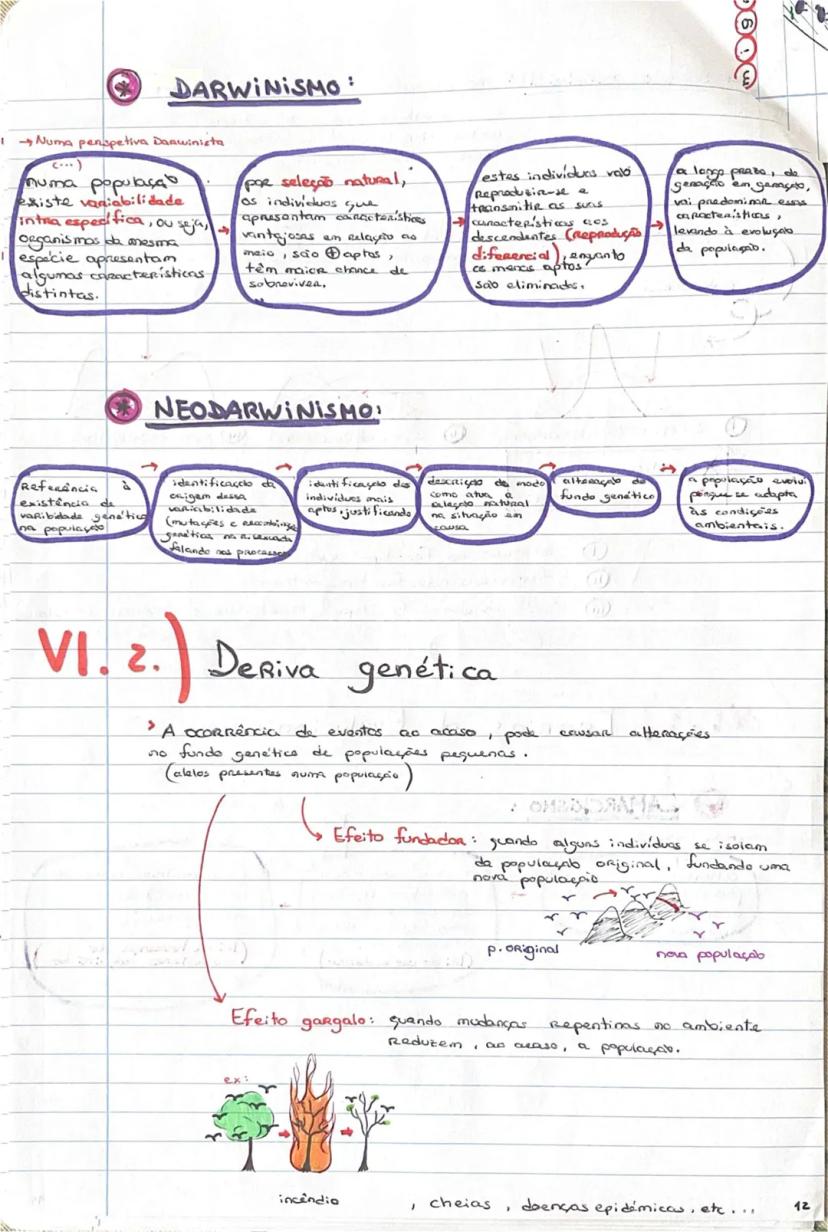 DARWINISMO:
→ Numa perspetiva Darwinista
(...)
numa população
existe variabilidade
intraespecífica, ou seja,
organismos da mesma
espécie apresentam
algumas características
distintas.
por seleção natural,
os indivíduos que
apresentam características
vantajosas em relação ao
meio, são ⊕ aptos,
têm maior chance de
sobreviver.
estes indivíduos vão
reproduzir-se e
transmitir as suas
características aos
descendentes (reprodução
diferencial), enquanto
os menos aptos
são eliminados.
a longo prazo, de
geração em geração,
vai predominar essas
características,
levando à evolução
da população.
NEODARWINISMO:
Referência à
existência de
varibidade genética
na população
identificação da
origem dessa
variabilidade
(mutações e recombinação
genéticas na R. sexuada
falando nos processos
identificação dos
indivíduos mais
aptos, justificando
descrição do modo
como atua a
seleção natural
na situação em
causa
alteração do
fundo genético
a população evolui
porque se adapta
às condições
ambientais.
VI. 2.) Deriva genética
A ocorrência de eventos ao acaso, pode causar alterações
no fundo genético de populações pequenas.
(alelos presentes numa população)
Efeito fundador: quando alguns indivíduos se isolam
da população original, fundando uma
nova população
p. original
nova população
Efeito gargalo: quando mudanças repentinas no ambiente
reduzem, ao acaso, a população.
ex:
incêndio , cheias, doenças epidémicas, etc...
12